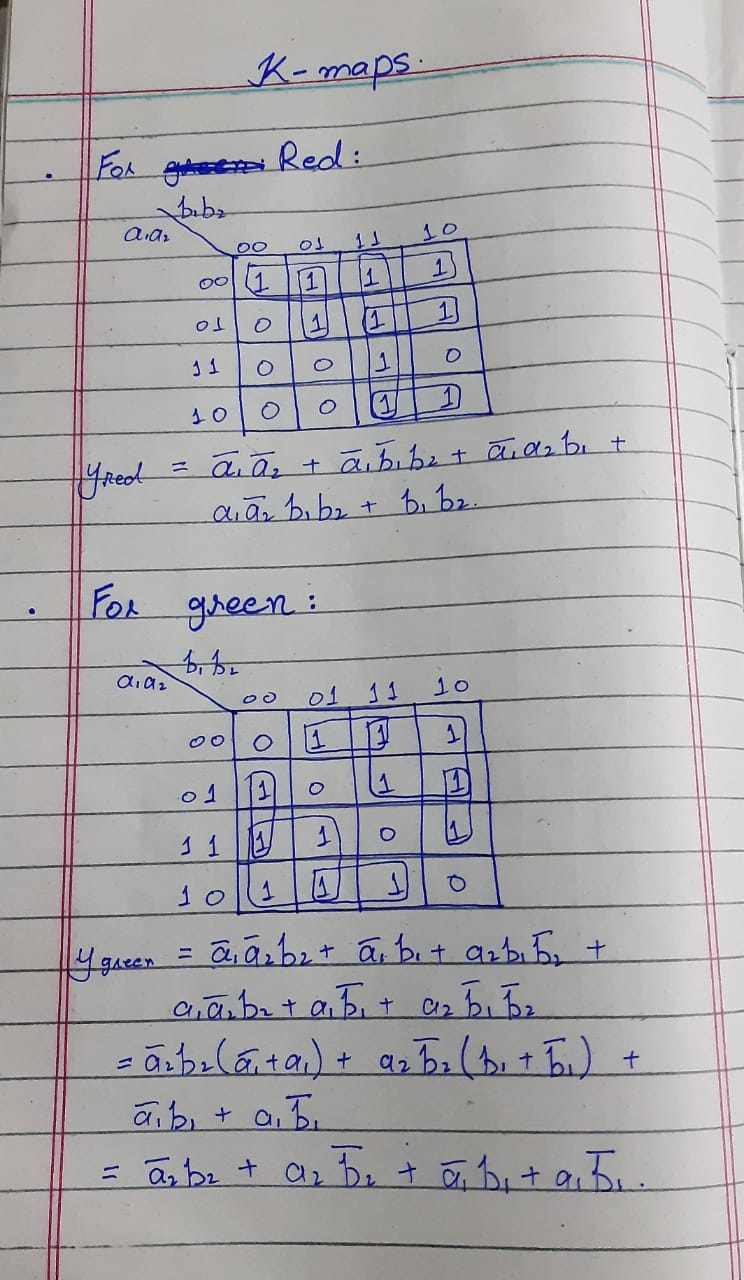 K-maps.
. For green: Red:
b₁b₂
a₁a₂
00 01 11 10
00 1 1 1 1
01 0 1 1 1
11 0 0 1 0
10 0 0 1 1
yRed = a̅₁a̅₂ + a̅₁b̅₁b₂ + a̅₁a₂b₁ +
a₁a̅₂b₁b₂ + b₁b₂.
. For green:
b₁b₂
a₁a₂
00 01 11 10
00 0 1 1 1
01 1 0 1 1
11 1 1 0 1
10 1 1 1 0
ygreen = a̅₁a̅₂b₂ + a̅₁b₁ + a₂b₁b̅₂ +
a₁a̅₂b₂ + a₁b̅₁ + a₂b̅₁b̅₂
= a̅₂b₂(a̅₁+a₁) + a₂b̅₂(b₁+b̅₁) +
a̅₁b₁ + a₁b̅₁
= a̅₂b₂ + a₂b̅₂ + a̅₁b₁ + a₁b̅₁.